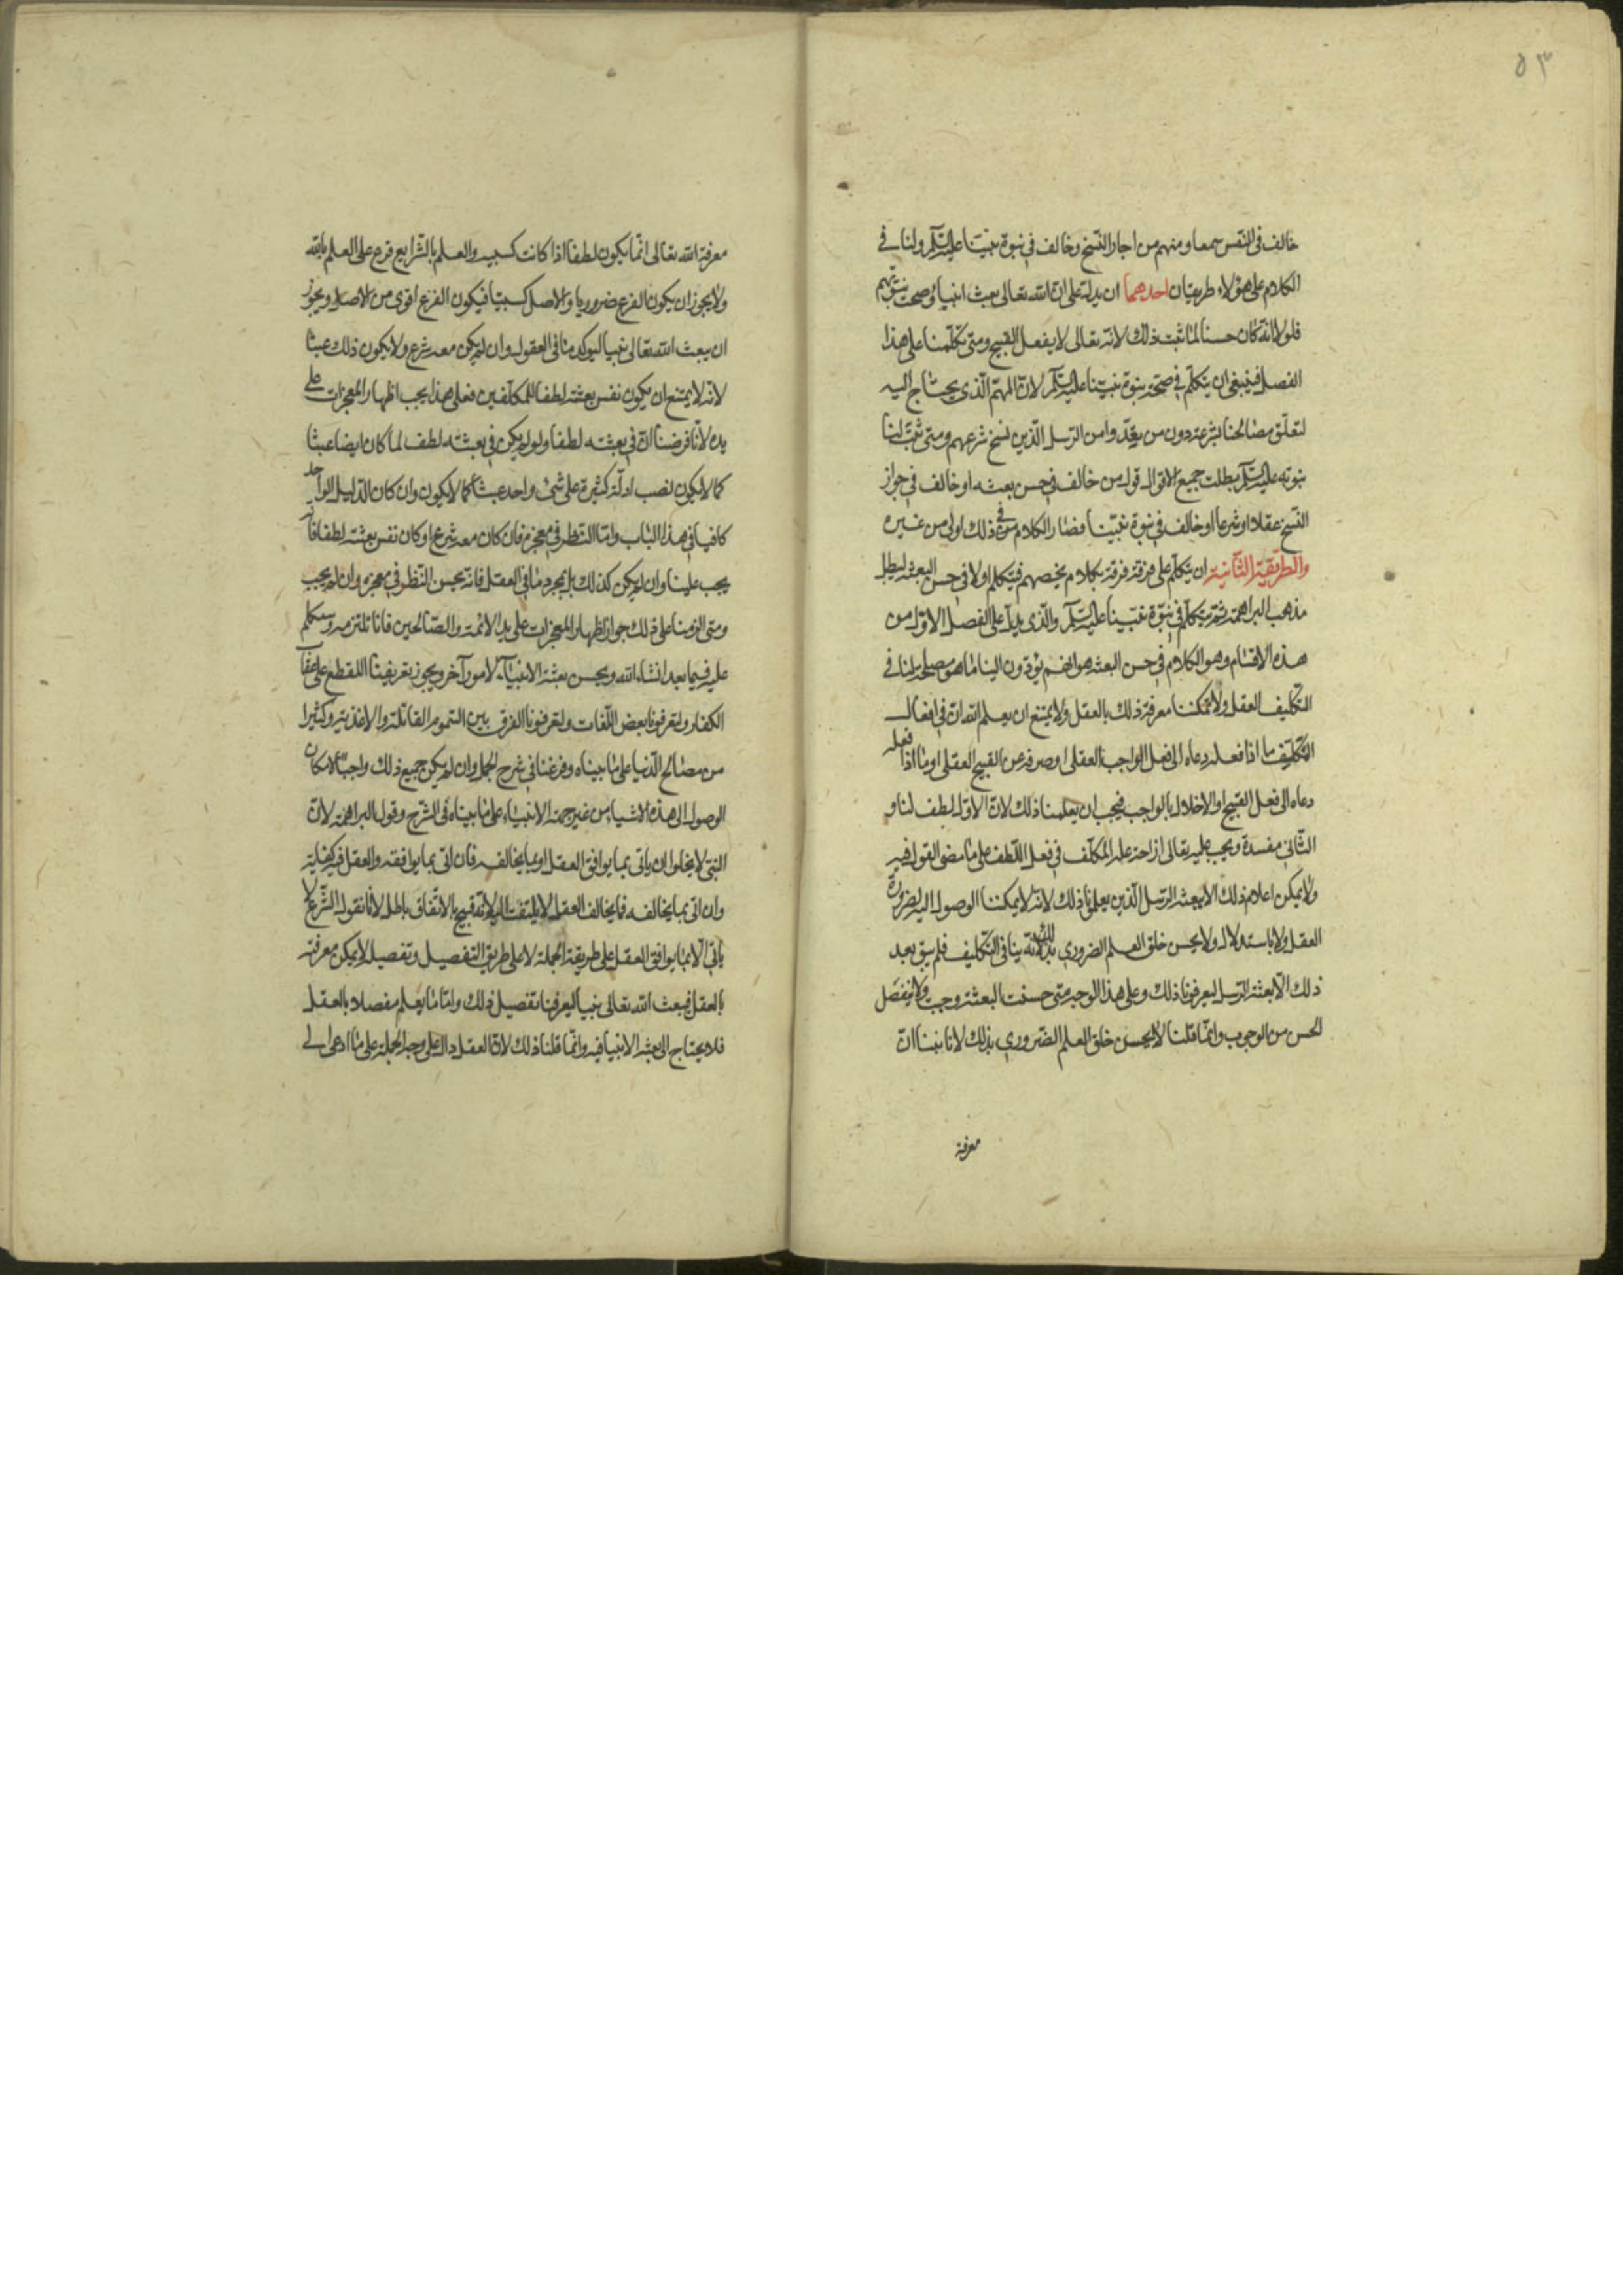 ٥٣
خالف فى النقس سمعا ومنهم من اجاز النسخ وخالف في نبوة نبينا عليه السلم ولنا في
الكلام على هؤلاء طريقان احدهما ان يدل على ان الله تعالى بعث انبياء وصحت نبوتهم
فلولا انه كان حسنا لما ثبت ذلك لانه تعالى لا يفعل القبيح ومتى تكلمنا على هذا
الفصل فينبغى ان يتكلم في صحة نبوة نبينا عليه السلم لان المهم الذى يحتاج اليه
لتعلق مصالحنا بشرعه دون من يقدموا من الرسل الذين نسخ شرعهم ومتى ثبت لنا
نبوته عليه السلم بطلت جميع الاقوال قول من خالف في حسن بعثه او خالف في جواز
النسخ عقلا او شرعا او خالف في نبوة نبينا فصار الكلام في ذلك اولى من غيره
والطريقة الثانية ان يتكلم على فرقة فرقة بكلام يخصهم فيتكلم اولا في حسن البعثه ليبطل
مذهب البراهمة ثم يتكلم في نبوة نبينا عليه السلم والذى يدل على الفصل الاول من
هذه الاقسام وهو الكلام في حسن البعثه هو انهم يؤدون الينا ما هو مصلحة لنا في
التكليف العقل ولا يمكننا معرفة ذلك بالعقل ولا يمتنع ان يعلم الله ان في افعال
التكليف ما اذا فعله دعاه الى فعل الواجب العقلى او صرفه عن القبيح العقلى او ما اذا فعله
دعاه الى فعل القبيح او الاخلال بالواجب فيجب ان يعلمنا ذلك لان الاول لطف لنا و
الثانى مفسدة ويجب عليه تعالى ازاحة علة المكلف في فعل اللطف على ما مضى القول فيه
ولا يمكن اعلام ذلك الا ببعثه الرسل الذين يعلمونا ذلك لانه لا يمكننا الوصول اليه بضرورة
العقل ولا باستدلال ولا يحسن خلق العلم الضرورى بذلك لانه ينافى التكليف فلم يبق بعد
ذلك الا بعثة الرسل ليعرفونا ذلك وعلى هذا الوجه متى حسنت البعثة وجبت ولا ينفصل
الحسن من الوجوب وانما قلنا لا يحسن خلق العلم الضرورى بذلك لانا بينا ان
معرفة
معرفة الله تعالى انما يكون لطفا اذا كانت كسبيه والعلم بالشرايع فرع على العلم بالله
ولا يجوز ان يكون الفرع ضروريا والاصل كسبيا فيكون الفرع اقوى من الاصل ويجوز
ان يبعث الله تعالى نبيا ليوكد ما في العقول وان لم يكن معه شرع ولا يكون ذلك عبثا
لانه لا يمتنع ان يكون نفس بعثته لطفا للمكلفين فعلى هذا يجب اظهار المعجزات على
يده لانا فرضنا ان في بعثته لطفا ولو لم يكن في بعثته لطف لما كان ايضا عبثا
كما لا يكون نصب ادلة كثيرة على شئ واحد عبثا كما لا يكون وان كان الدليل الواحد
كافيا في هذا الباب واما النظر في معجزه فان كان معه شرع او كان نفس بعثته لطفا فانه
يجب علينا وان لم يكن كذلك بل بمجرد ما في العقل فانه يحسن النظر في معجزه وان لم يجب
ومتى الزمنا على ذلك جواز اظهار المعجزات على يد الائمة والصالحين فانا نلتزمه وسنتكلم
عليه فيما بعد انشاء الله ويحسن بعثة الانبياء لامور آخر ويجوز بتعريفنا القطع على عقاب
الكفار وليعرفونا بعض اللغات وليعرفونا الفرق بين السموم القاتلة والاغذية وكثيرا
من مصالح الدنيا على ما بيناه وفرغنا في شرح الجمل وان لم يكن جميع ذلك واجبا لامكان
الوصول الى هذه الاشياء من غير جهة الانبياء على ما بيناه في الشرح وقول البراهمة لان
النبى لا يخلوا ان ياتى بما يوافق العقل او بما يخالفه فان اتى بما يوافقه والعقل فيه كفاية
وان اتى بما يخالفه فما يخالف العقل لا يلتفت اليه لانه قبيح بالاتفاق باطل لانا نقول الشرع لا
ياتى الا بما يوافق العقل على طريقة الجملة لا على طريق التفصيل وتفصيل لا يمكن معرفته
بالعقل فبعث الله تعالى نبيا ليعرفنا تفصيل ذلك واما ما يعلم مفصلا بالعقل
فلا يحتاج الى بعثه الانبيا فيه وانما قلنا ذلك لان العقل دال على وجه الجملة على ما ادعى الى